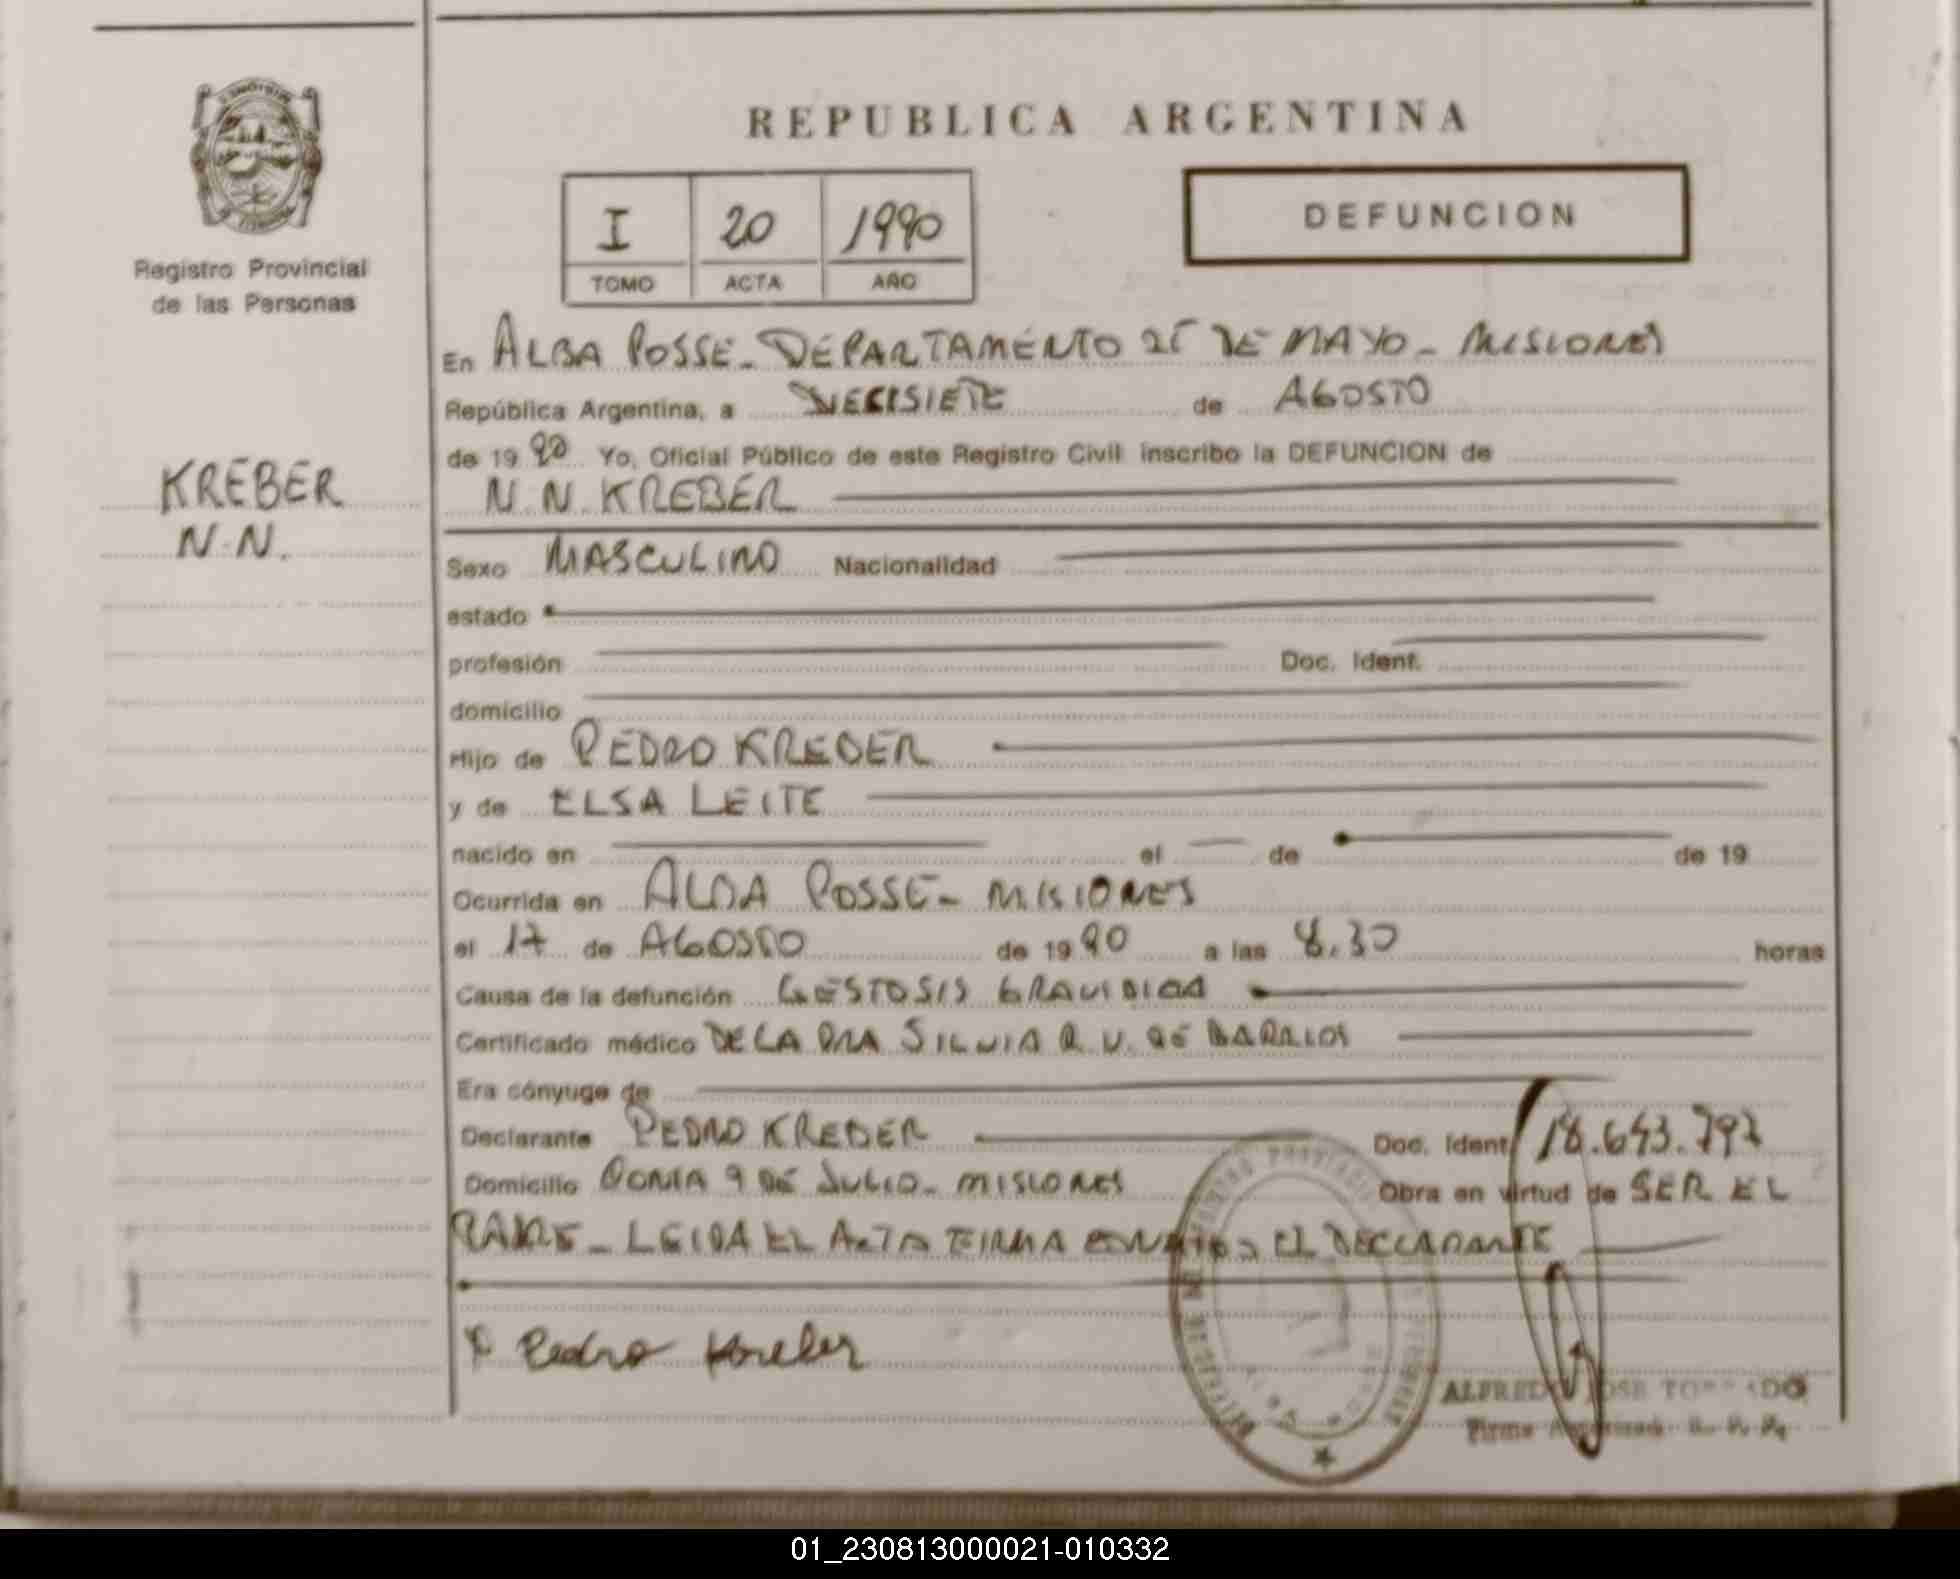 REPUBLICA ARGENTINA
Registro Provincial
de las Personas
I 20 1990
TOMO ACTA AÑO
DEFUNCION
KREBER
N.N.
En ALBA POSSE - DEPARTAMENTO 25 DE MAYO - MISIONES
República Argentina, a DIECISIETE de AGOSTO
de 1990 Yo, Oficial Público de este Registro Civil inscribo la DEFUNCION de
N.N. KREBER
Sexo MASCULINO Nacionalidad
estado
profesión Doc. Ident.
domicilio
Hijo de PEDRO KREBER
y de ELSA LEITE
nacido en el de de 19
Ocurrida en ALBA POSSE - MISIONES
el 17 de AGOSTO de 1990 a las 8.30 horas
Causa de la defunción GESTOSIS GRAVIDICA
Certificado médico DE LA DRA SILVIA R. V. DE BARRIOS
Era cónyuge de
Declarante PEDRO KREBER Doc. Ident 18.643.792
Domicilio 9 DE JULIO - MISIONES Obra en virtud de SER EL
PADRE - LEIDA EL ACTA FIRMA EL DECLARANTE
Pedro Kreber
ALFREDO JOSE
Firma
01_230813000021-010332